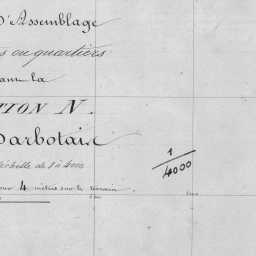 d'Assemblage
ou quartiers
dans la
TION N.
Darbotan
échelle de 1 à 4000
1
4000
pour 4 mètres sur le terrain.